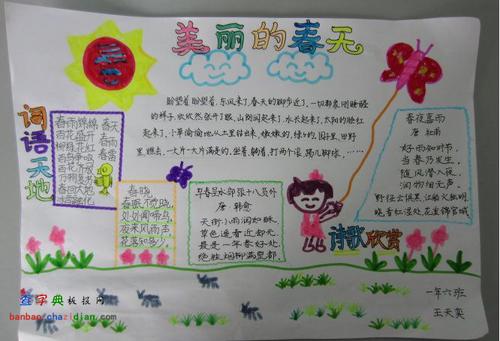 美丽的春天
盼望着盼望着,东风来了,春天的脚步近了,一切都象刚睡醒
的样子,欣欣然张开了眼,山朗润起来了,水长起来了,太阳的脸红
起来了,小草偷偷地从土里钻出来,嫩嫩的,绿绿的,园子里,田野
里,瞧去,一大片一大片满是的,坐着,躺着,打两个滚,踢几脚球,……
词语天地
春雨绵绵
百花盛开
百鸟争鸣
百花齐放
春回大地
春天
春雨
春雷
春晓
春眠不觉晓,
处处闻啼鸟,
夜来风雨声
花落知多少。
早春呈水部张十八员外
唐 韩愈
天街小雨润如酥,
草色遥看近却无,
最是一年春好处,
绝胜烟柳满皇都,
春夜喜雨
唐 杜甫
好雨知时节,
当春乃发生,
随风潜入夜,
润物细无声,
野径云俱黑,江船火独明,
晓看红湿处,花重锦官城
诗歌欣赏
一年六班
王天奕
查字典板报网
banbao.chazidian.com